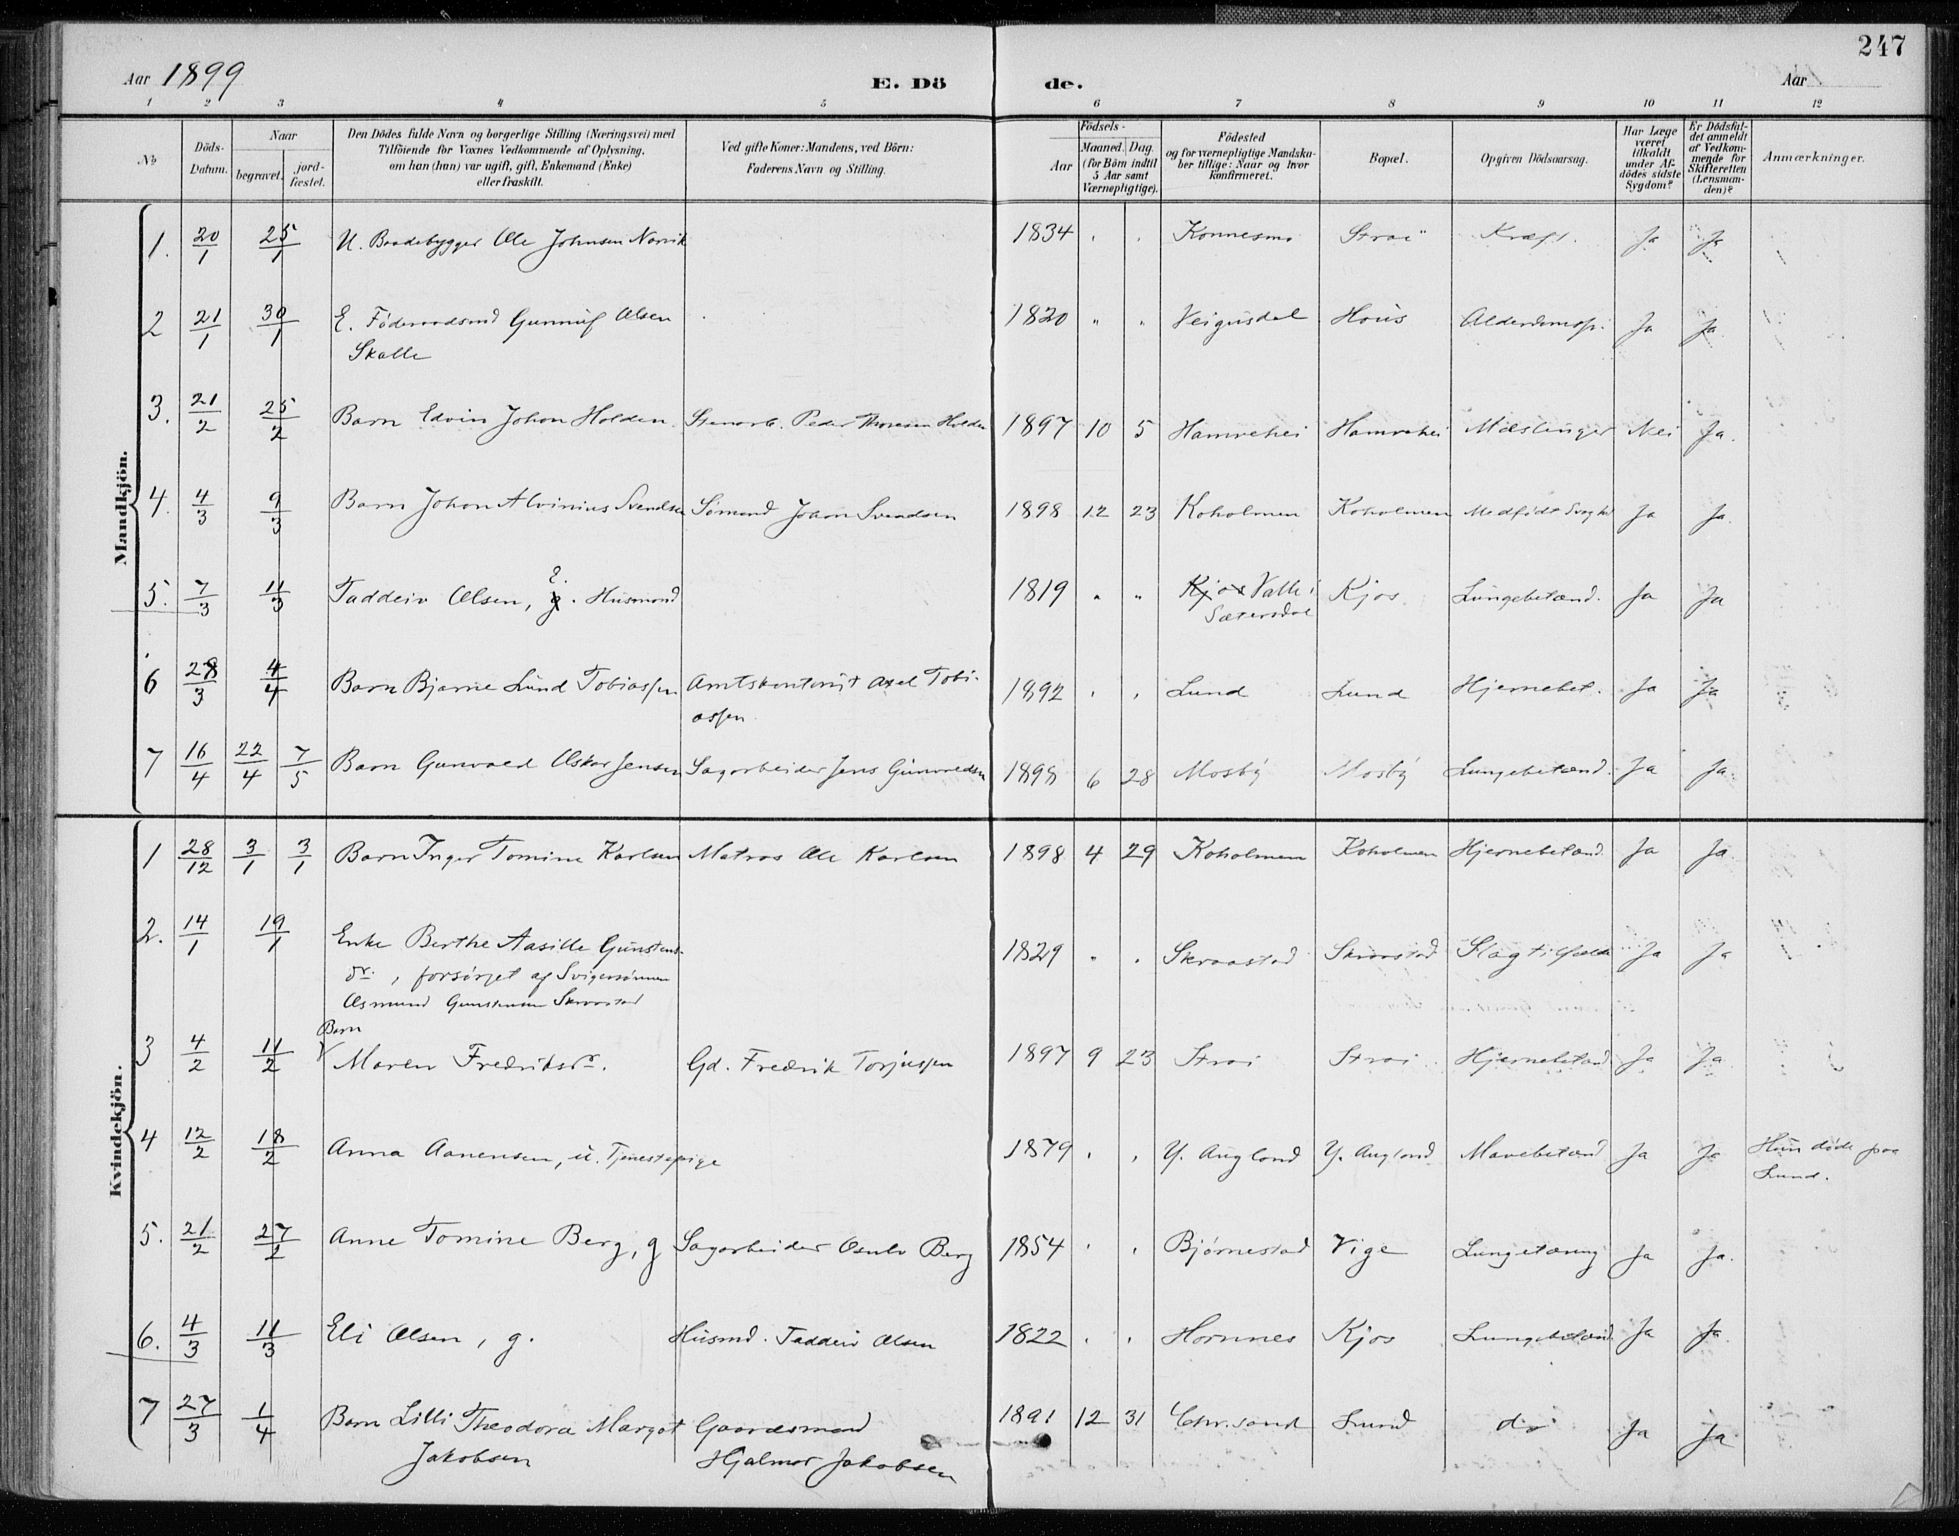 247
Aar 1899
E. Dö
de.
Aar
1 2 3 4 5 6 7 8 9 10 11 12
No
Döds-Datum.
Naar
begravet.
jord-fæstet.
Den Dödes fulde Navn og borgerlige Stilling (Næringsvei) med
Tilföiende for Voxnes Vedkommende af Oplysning,
om han (hun) var ugift, gift, Enkemand (Enke)
eller fraskilt.
Ved gifte Koner: Mandens, ved Börn:
Faderens Navn og Stilling.
Födsels-
Aar
Maaned.
Dag
(for Börn indtil
5 Aar samt
Værnepligtige).
Födested
og for værnepligtige Mandska-
ber tillige: Naar og hvor
konfirmeret.
Bopæl.
Opgiven Dödsaarsag.
Har Læge
været
tilkaldt
under Af-
dödes sidste
Sygdom?
Er Dödsfal-
det anmeldt
af Vedkom-
mende for
Skifteretten
(Lensman-
den)?
Anmærkninger.
Mandkjön.
1. 20/1 25/1 U. Baadebygger Ole Johnsen Narvik 1834 Konnesmo Strai Kræft. Ja Ja
2 21/1 30/1 E. Föderaadsmd Gunnuf Olsen 1820 " " Veigusdal Hous Alderdomssv. Ja Ja
Skalle
3. 21/2 25/2 Barn Edvin Johan Holden Stenarb. Peder Thoresen Holden 1897 10 5 Hamrehei Hamrehei Mæslinger Nei Ja.
4. 4/3 9/3 Barn Johan Alvinius Svendsen Sömand Johan Svendsen 1898 12 23 Koholmen Koholmen Medfödt Svaghed Ja Ja.
5. 7/3 11/3 Taddeiv Olsen, g. E. Husmand 1819 " " Kjos Valle i Kjos Lungebetænd. Ja Ja
Sætersdal
6 28/3 4/4 Barn Bjarne Lund Tobiassen Amtskontorist Axel Tobi- 1892 Lund Lund Hjernebet. Ja Ja
assen
7 16/4 22/4 7/5 Barn Gunvald Oskar Jensen Sagarbeider Jens Gunvaldsen 1898 6 28 Mosby Mosby Lungebetænd. Ja Ja.
Kvindekjön.
1 28/12 3/1 3/1 Barn Inger Tomine Karlsen Matros Ole Karlsen 1898 4 29 Koholmen Koholmen Hjernebetænd. Ja Ja.
2. 14/1 19/1 Enke Berthe Aasille Gunstens- 1829 " " Skraastad Skraastad Slagtilfælde Ja Ja
dr., forsörget af Svigersönnen
Osmund Gunstensen Skraastad
3 4/2 11/2 Barn Maren Fredriksdr. Gd. Fredrik Torjussen 1897 9 23 Strai Strai Hjernebetænd Ja Ja.
4 12/2 18/2 Anna Aanensen, u. Tjenestepige 1879 Y. Augland Y. Augland Mavebetænd Ja Ja Hun döde paa
Lund.
5. 21/2 27/2 Anne Tomine Berg, g Sagarbeider Osulv Berg 1854 Bjørnestad Vige Lungetæring Ja Ja.
6. 4/3 11/3 Eli Olsen, g. Husmd. Taddeiv Olsen 1822 Hornnes Kjos Lungebetænd Ja Ja.
7 27/3 1/4 Barn Lilli Theodora Margot Gaardsmand 1891 12 31 Chr.sand Lund do Ja Ja
Jakobsen Hjalmar Jakobsen